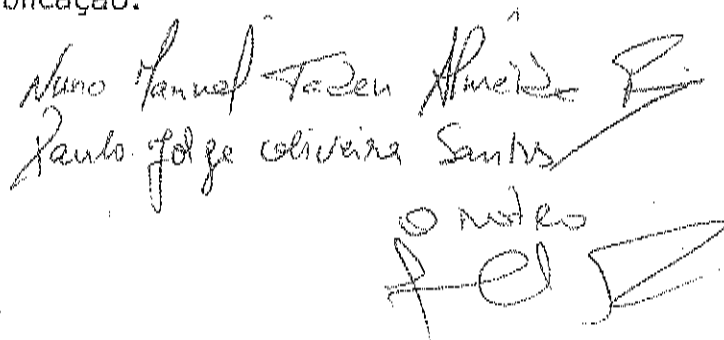 blicação.
Nuno Manuel Tadeu Almeida
Paulo Jorge Oliveira Santos
O notário